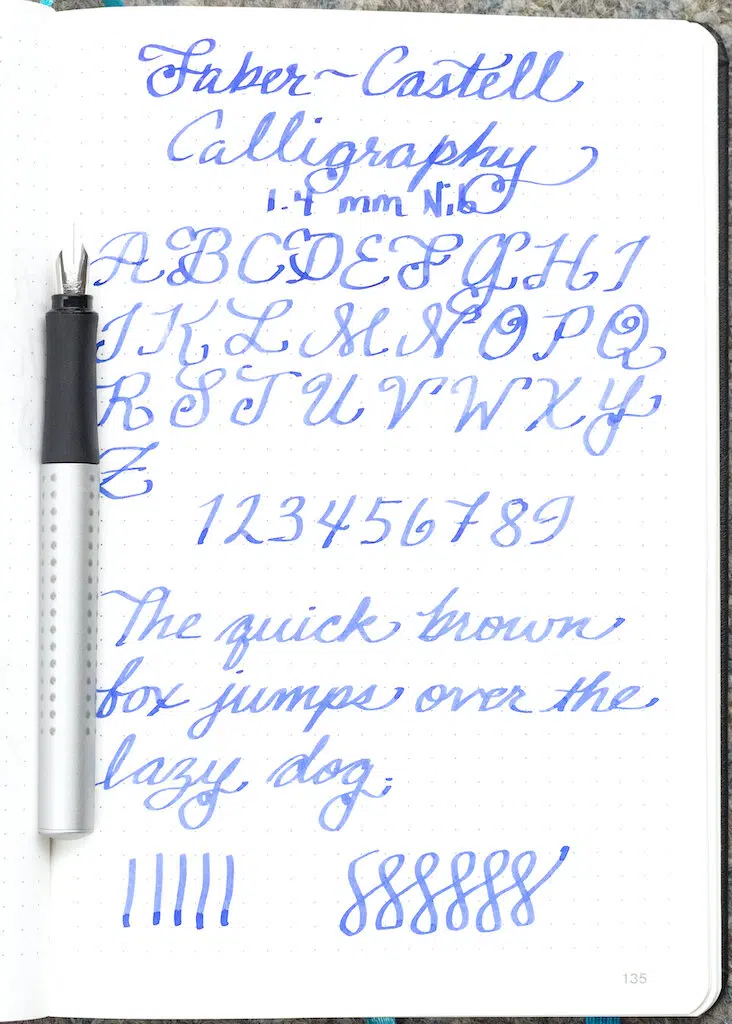 Faber~Castell
Calligraphy
1.4 mm Nib
A B C D E F G H I
J K L M N O P Q
R S T U V W X Y
Z
1 2 3 4 5 6 7 8 9
The quick brown
fox jumps over the
lazy dog.
135